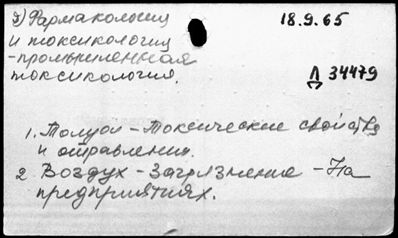 7) Фармакологиц
18.9.65
и токсикологиц
-промышленная
токсикология.
Д 34479
1. Толуол - Токсические свойства
и отравления.
2. Воздух - Загрязнение - На
предприятиях.